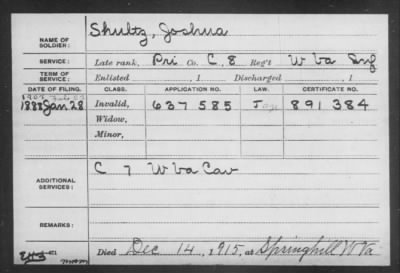 NAME OF SOLDIER: Shultz, Joshua
SERVICE: Late rank, Pri Co. C, 8 Reg't W Va Inf
TERM OF SERVICE: Enlisted , 1 Discharged , 1
DATE OF FILING. CLASS. APPLICATION NO. LAW. CERTIFICATE NO.
1888 Jan 28 Invalid, 637585 891384
Widow,
Minor,
ADDITIONAL SERVICES: C 7 W Va Cav
REMARKS:
Died Dec 14, 1915, at Springhill W Va